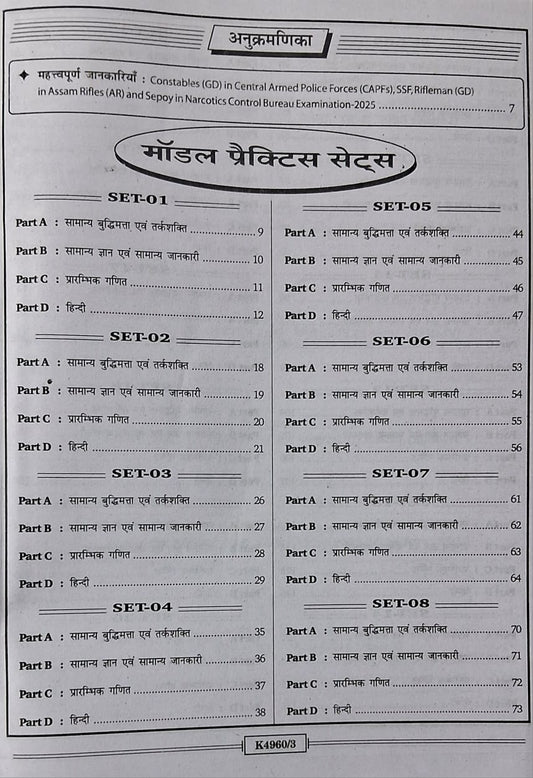 अनुक्रमणिका
✦ महत्त्वपूर्ण जानकारियाँ : Constables (GD) in Central Armed Police Forces (CAPFs), SSF, Rifleman (GD)
in Assam Rifles (AR) and Sepoy in Narcotics Control Bureau Examination-2025 ........................................ 7
मॉडल प्रैक्टिस सेट्स
SET-01
Part A : सामान्य बुद्धिमत्ता एवं तर्कशक्ति .................... 9
Part B : सामान्य ज्ञान एवं सामान्य जानकारी ................ 10
Part C : प्रारम्भिक गणित ........................................ 11
Part D : हिन्दी ...................................................... 12
SET-02
Part A : सामान्य बुद्धिमत्ता एवं तर्कशक्ति .................... 18
Part B : सामान्य ज्ञान एवं सामान्य जानकारी ................ 19
Part C : प्रारम्भिक गणित ........................................ 20
Part D : हिन्दी ...................................................... 21
SET-03
Part A : सामान्य बुद्धिमत्ता एवं तर्कशक्ति .................... 26
Part B : सामान्य ज्ञान एवं सामान्य जानकारी ................ 27
Part C : प्रारम्भिक गणित ........................................ 28
Part D : हिन्दी ...................................................... 29
SET-04
Part A : सामान्य बुद्धिमत्ता एवं तर्कशक्ति .................... 35
Part B : सामान्य ज्ञान एवं सामान्य जानकारी ................ 36
Part C : प्रारम्भिक गणित ........................................ 37
Part D : हिन्दी ...................................................... 38
SET-05
Part A : सामान्य बुद्धिमत्ता एवं तर्कशक्ति .................... 44
Part B : सामान्य ज्ञान एवं सामान्य जानकारी ................ 45
Part C : प्रारम्भिक गणित ........................................ 46
Part D : हिन्दी ...................................................... 47
SET-06
Part A : सामान्य बुद्धिमत्ता एवं तर्कशक्ति .................... 53
Part B : सामान्य ज्ञान एवं सामान्य जानकारी ................ 54
Part C : प्रारम्भिक गणित ........................................ 55
Part D : हिन्दी ...................................................... 56
SET-07
Part A : सामान्य बुद्धिमत्ता एवं तर्कशक्ति .................... 61
Part B : सामान्य ज्ञान एवं सामान्य जानकारी ................ 62
Part C : प्रारम्भिक गणित ........................................ 63
Part D : हिन्दी ...................................................... 64
SET-08
Part A : सामान्य बुद्धिमत्ता एवं तर्कशक्ति .................... 70
Part B : सामान्य ज्ञान एवं सामान्य जानकारी ................ 71
Part C : प्रारम्भिक गणित ........................................ 72
Part D : हिन्दी ...................................................... 73
K4960/3